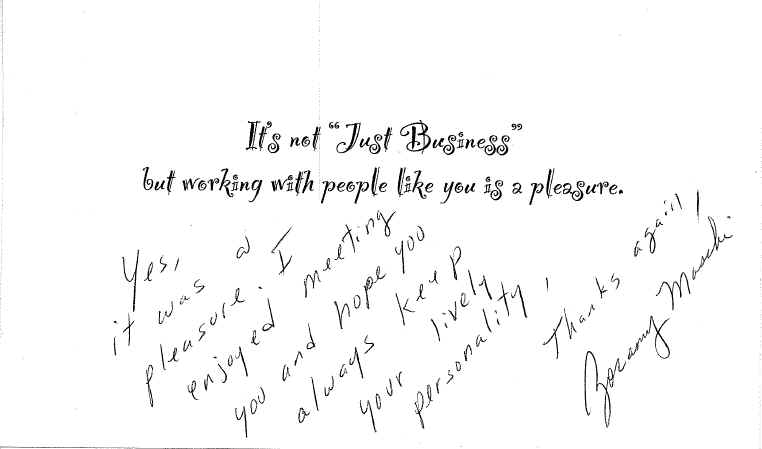 It's not “Just Business”
but working with people like you is a pleasure.
Yes,
it was a
pleasure. I
enjoyed meeting
you and hope you
always keep
your lively
personality!
Thanks again!